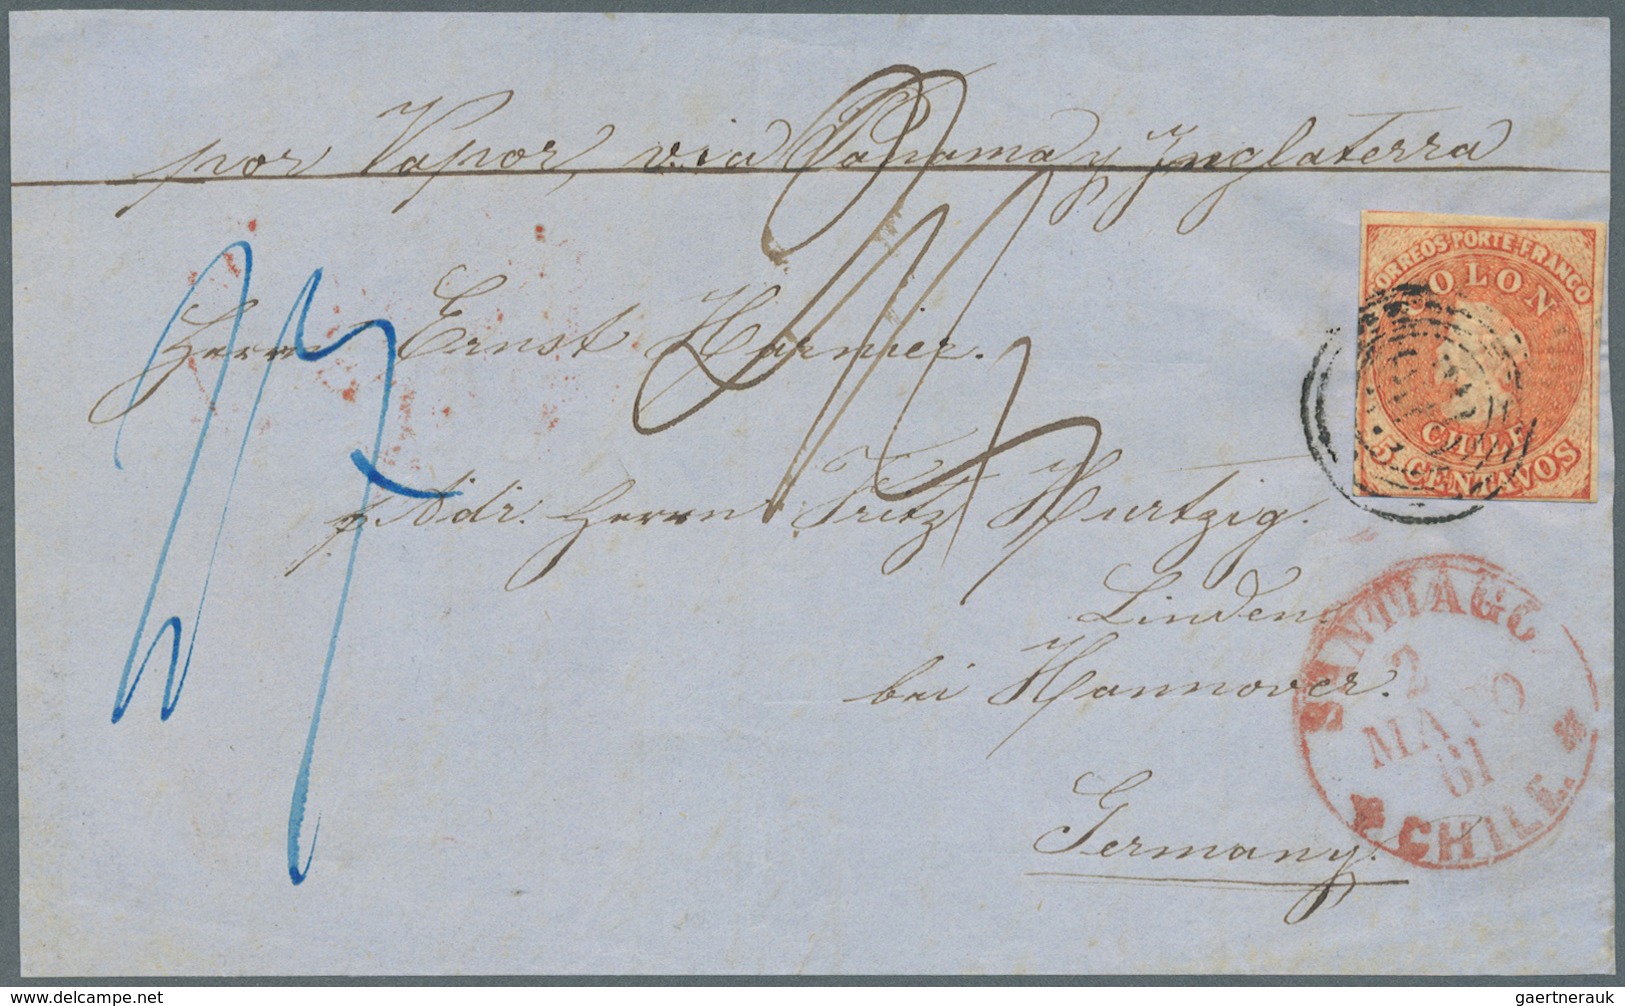 por Vapor, via Panama y Inglaterra
CORREOS-PORTE-FRANCO
COLON
CHILE
5 CENTAVOS
Herrn Ernst Harnier.
p. Adr. Herrn Fritz Hurtzig.
Linden
bei Hannover.
Germany.
SANTIAGO
2
MAYO
61
CHILE.
delcampe.net
gaertnerauk